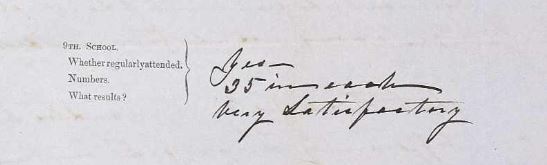 9TH. SCHOOL.
Whether regularly attended.
Numbers.
What results?
Yes—
35 in each
very Satisfactory